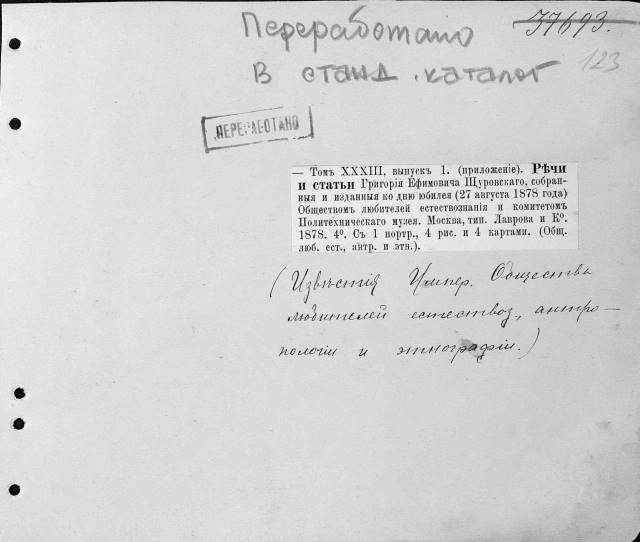 Переработано
37693.
в станд. каталог
123
ПЕРЕРАБОТАНО
— Томъ XXXIII, выпускъ 1. (приложеніе). Рѣчи
и статьи Григорія Ефимовича Щуровскаго, собран-
ныя и изданныя ко дню юбилея (27 августа 1878 года)
Обществомъ любителей естествознанія и комитетомъ
Политехническаго музея. Москва, тип. Лаврова и Ко.
1878. 4°. Съ 1 портр., 4 рис. и 4 картами. (Общ.
люб. ест., антр. и этн.).
(Извѣстія Импер. Общества
любителей естествоз., антро-
пологіи и этнографіи.)